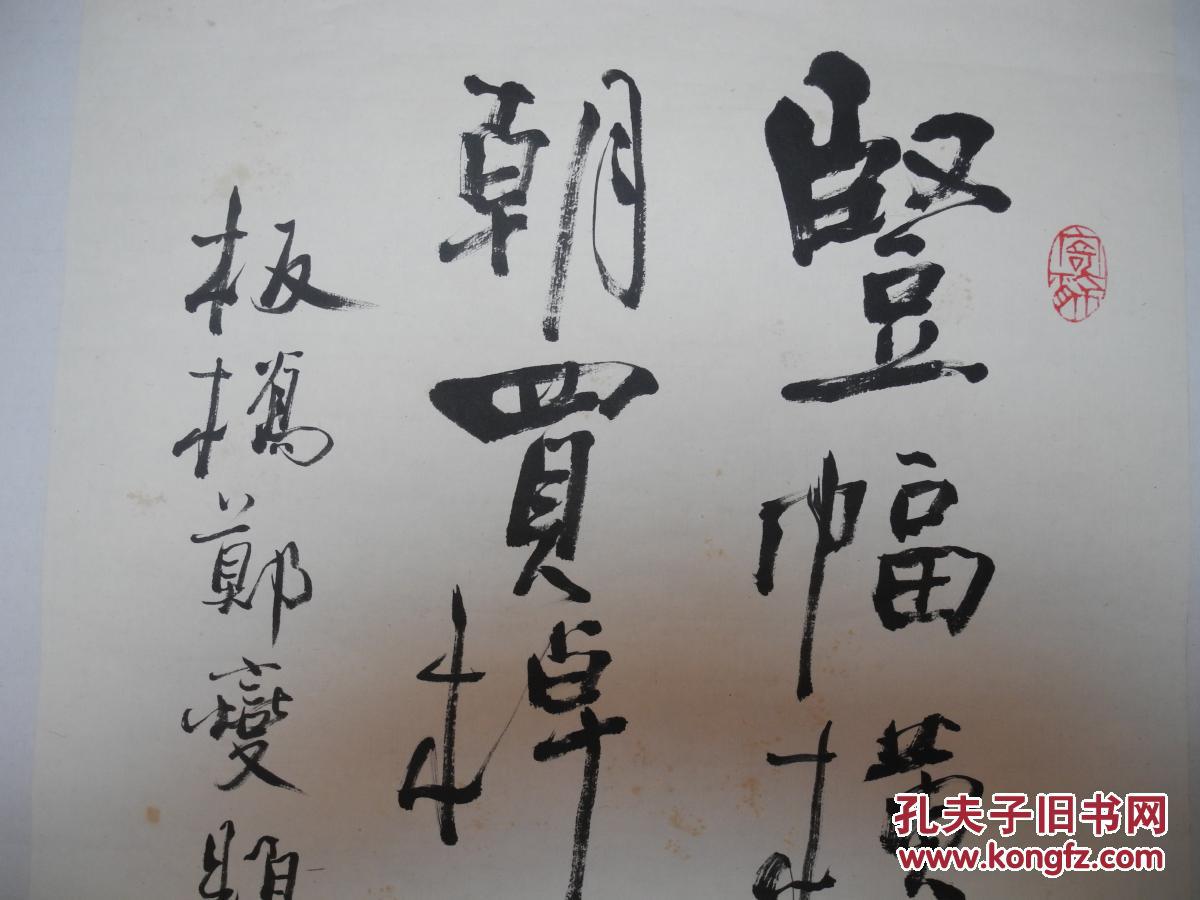 豎幅橫
朝買棹
板橋鄭燮題
孔夫子旧书网
www.kongfz.com